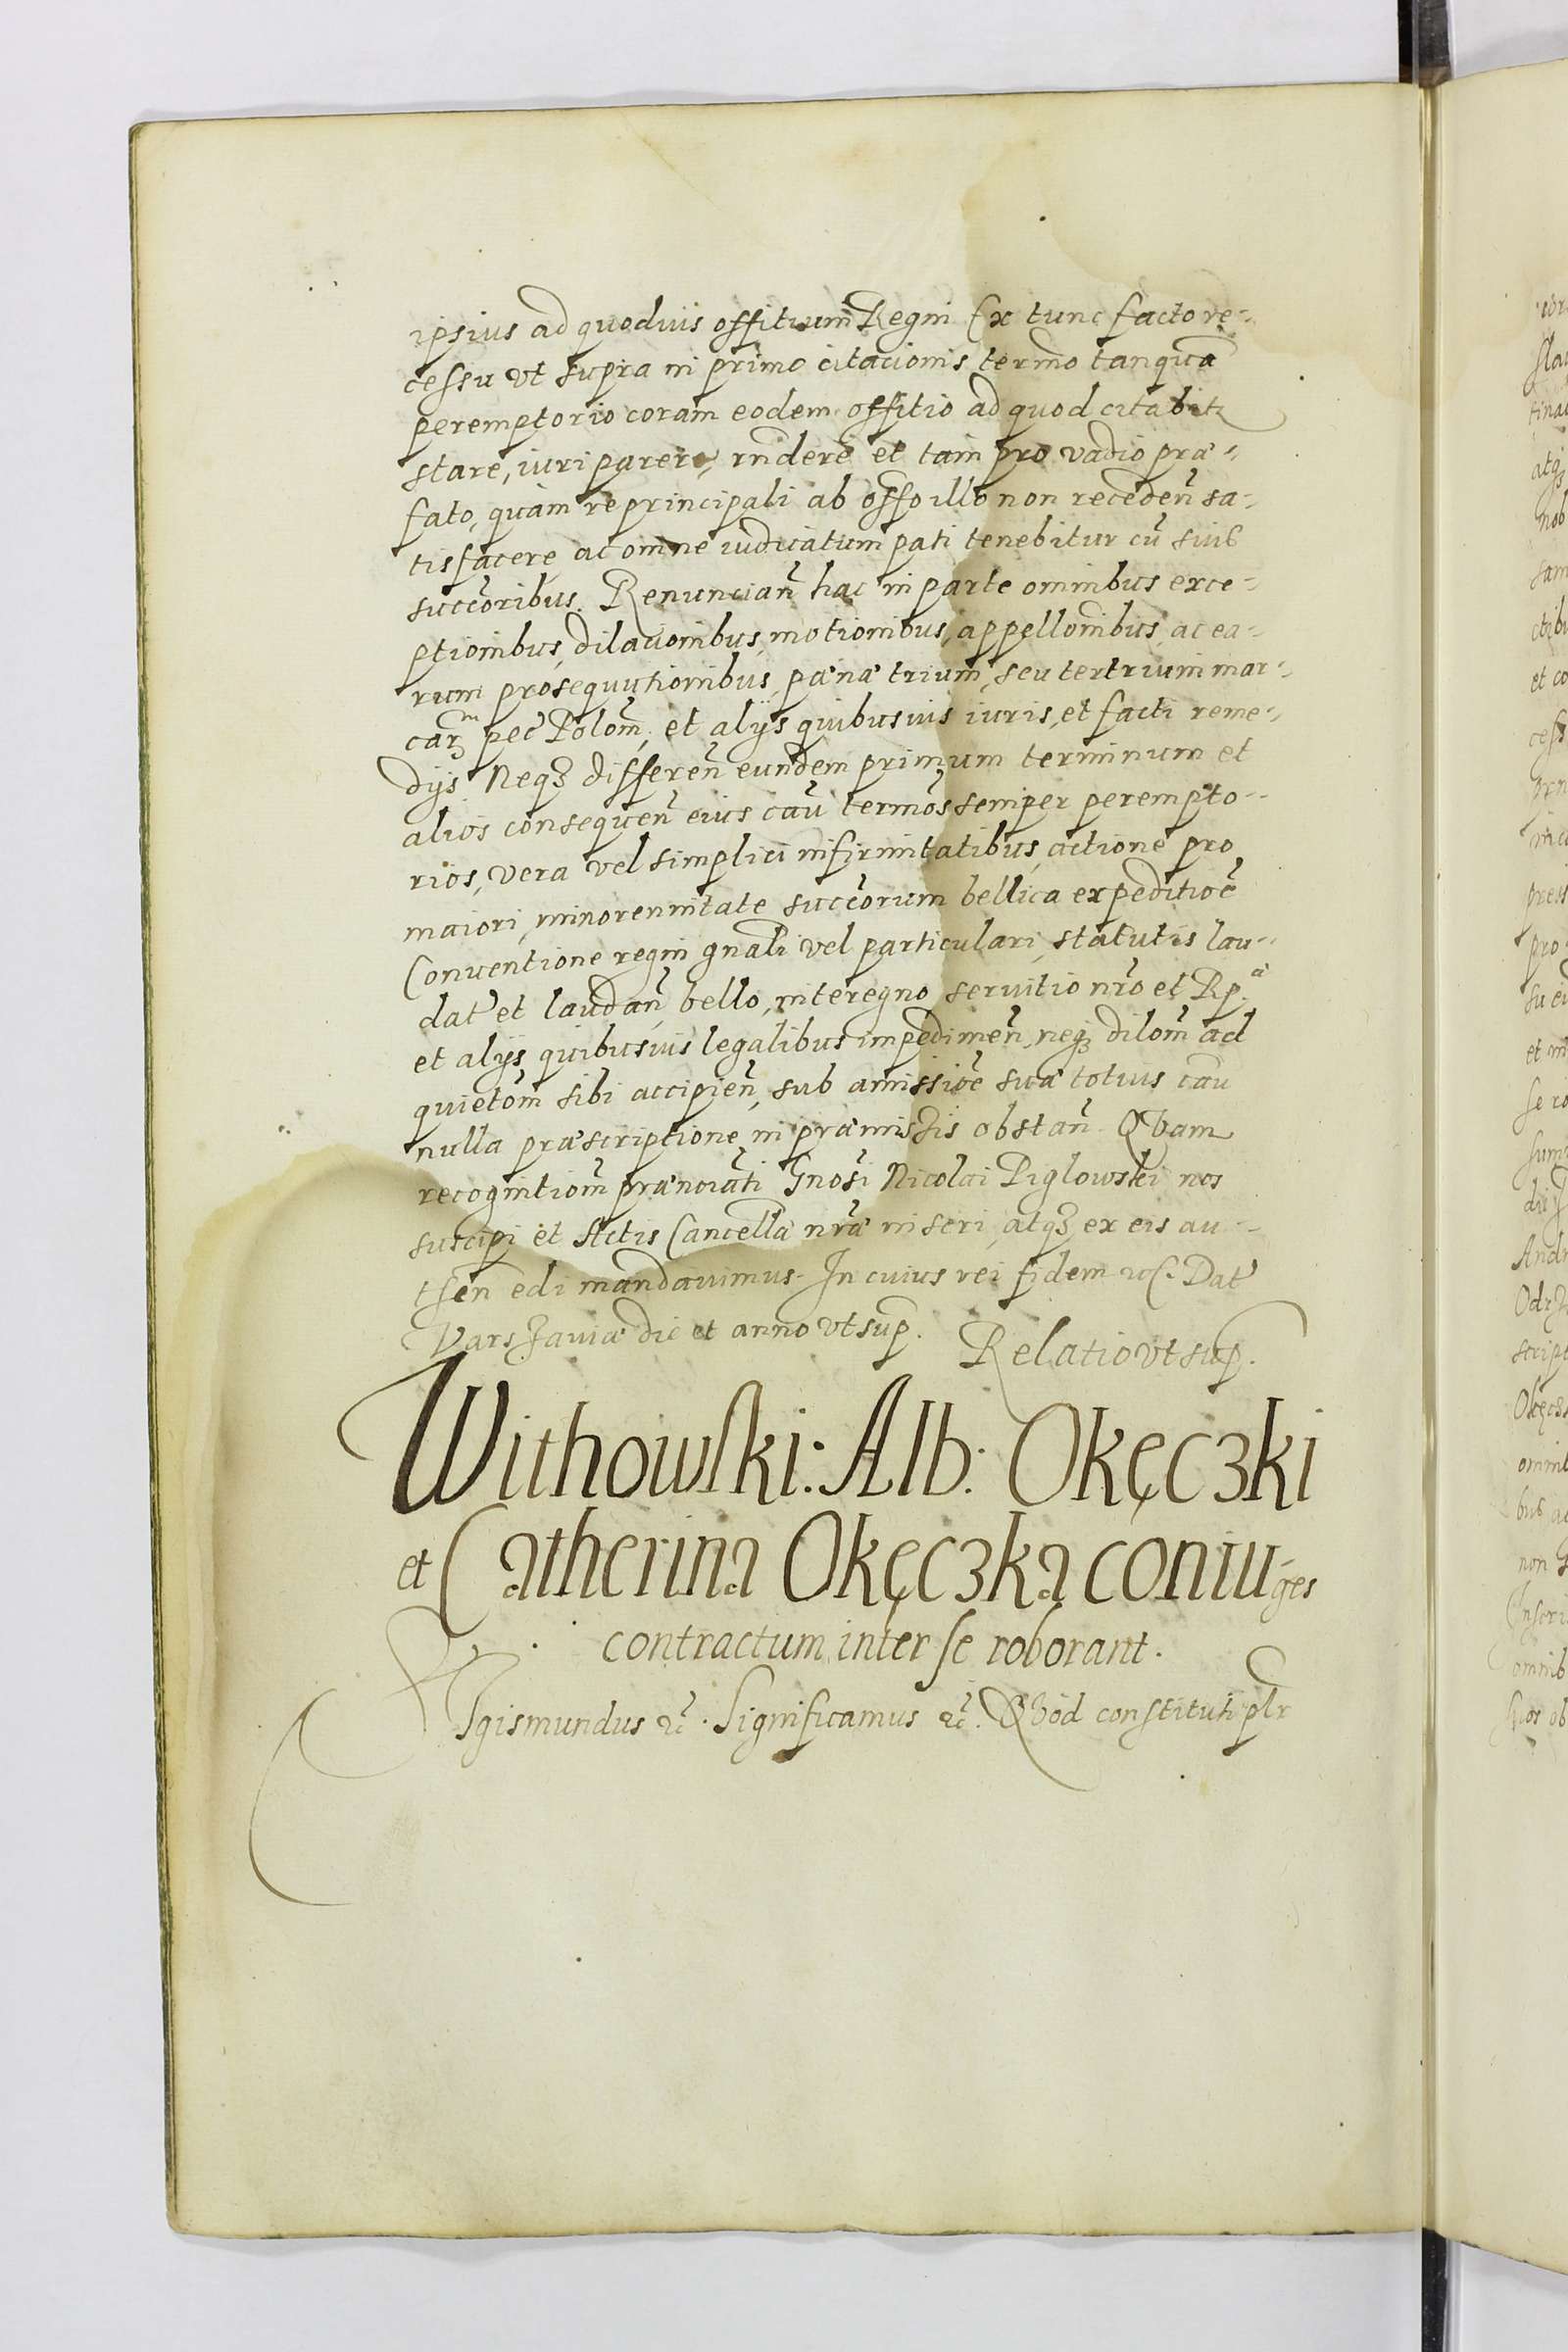 ipsius ad quoduis offitium Regni Ex tunc facto re-
cessu vt supra in primo citacionis termo tanqua
peremptorio coram eodem offitio ad quod citabit
stare, iuri parere, rndere et tam pro vadio præ-
fato, quam re principali ab offo illo non receden sa-
tisfacere ac omne iudicatum pati tenebitur cu suis
succoribus. Renuncian hac in parte omnibus exce-
ptionibus, dilacionibus, motionibus, appellonibus, ac ea-
rum prosequutionibus, pœna trium, seu ter trium mar-
car pec Polom, et alys quibusuis iuris, et facti reme-
dijs Neqz differen eundem primum terminum et
alios consequen eius cau termos semper perempto-
rios, vera vel simplici infirmitatibus, actione pro
maiori, minorennitate succorum bellica expeditioe
Conuentione regni gnali vel particulari, statutis lau-
dat et laudan, bello, interegno seruitio nro et Rp.æ
et alys quibusuis legalibus impedimen, neqz dilom ad
quietom sibi accipien, sub amissioe suæ totius cau
nulla præscriptione in præmissis obstan. Quam
recognitiom prænoiati Gnosi Nicolai Piglowski nos
suscipi et Actis Cancellæ nræ inseri, atqz ex eis au-
tsen edi mandauimus. In cuius rei fidem etc. Dat
Varszauiæ die et anno vt sup. Relatio vt sup.
Withowski: Alb: Okęczki
et Catherina Okęczka coniuges
contractum inter se roborant.
Sigismundus etc. Significamus etc. Quod constituti plr